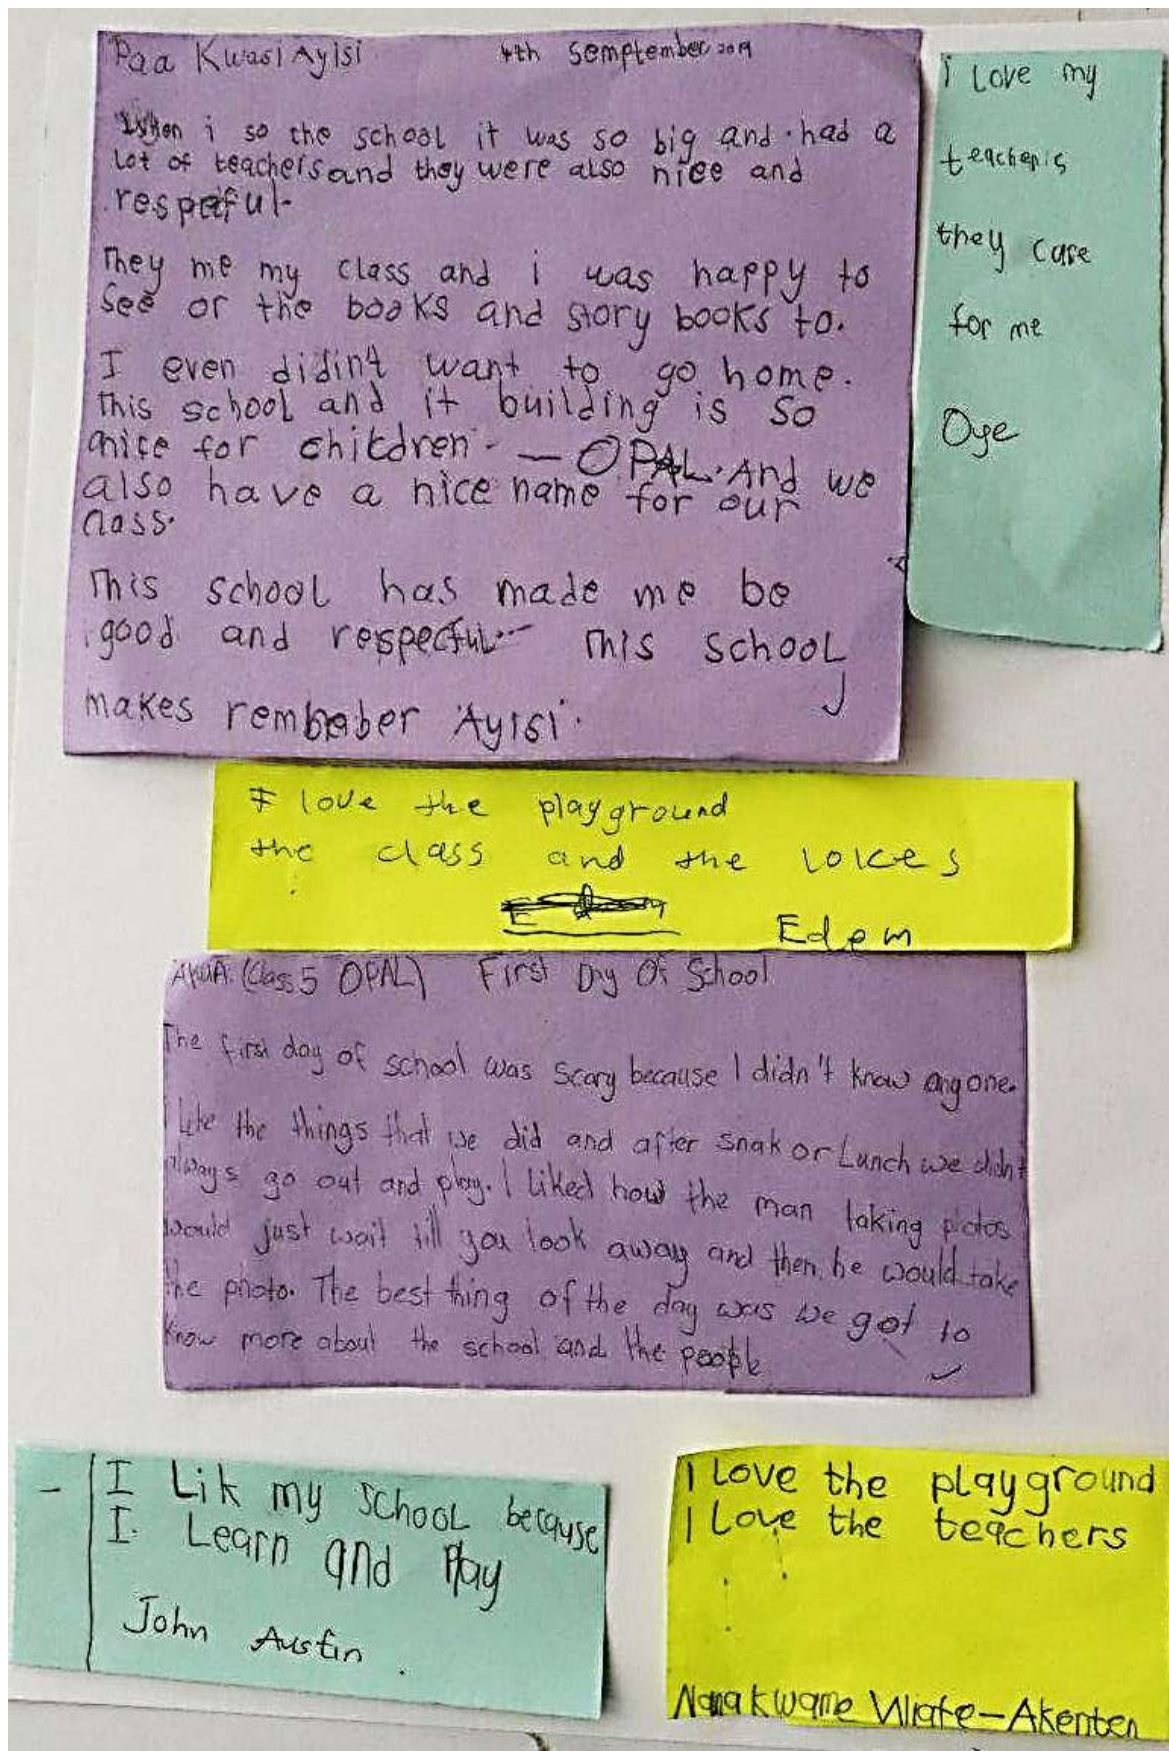 Paa Kwasi Ayisi 4th Semptember 2019
When i so the school it was so big and had a
Lot of teachers and they were also nice and
respefful.
They me my class and i was happy to
see or the books and story books to.
I even didin't want to go home.
This school and it building is so
nice for children. — OPAL. And we
also have a nice name for our
class.
This school has made me be
good and respectful... This school
makes rembeber Ayisi.
i Love my
teacheris
they care
for me
Oye
I love the playground
the class and the
Edem
AKUA. (Class 5 OPAL) First Day Of School
The first day of school was scary because I didn't know anyone.
I like the things that we did and after snak or Lunch we didn't
always go out and play. I liked how the man taking photos
would just wait till you look away and then he would take
the photo. The best thing of the day was we got to
know more about the school and the people
I Lik my school because
I. Learn and Play
John Austin.
I Love the playground
I Love the teachers
Nana Kwame Wiafe-Akenten